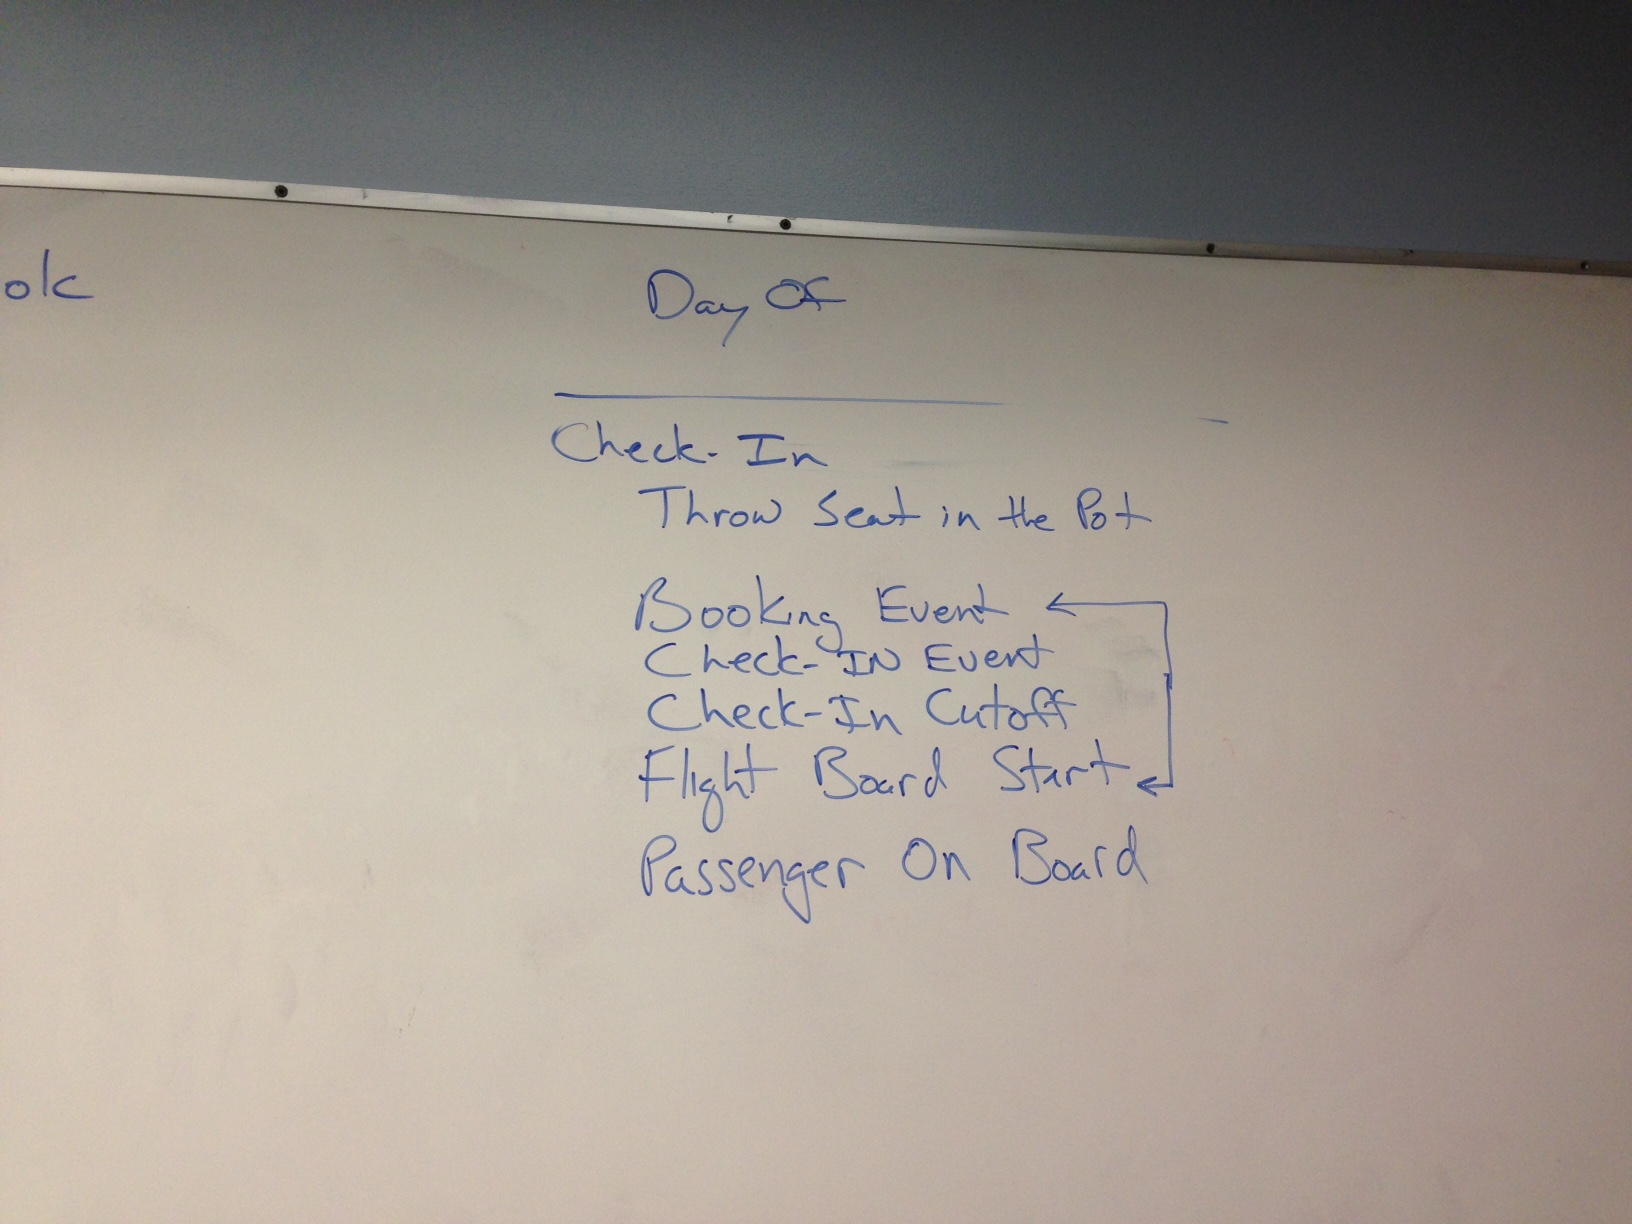 ok
Day Of
Check-In
Throw Seat in the Pot
Booking Event
Check-IN Event
Check-In Cutoff
Flight Board Start
Passenger On Board